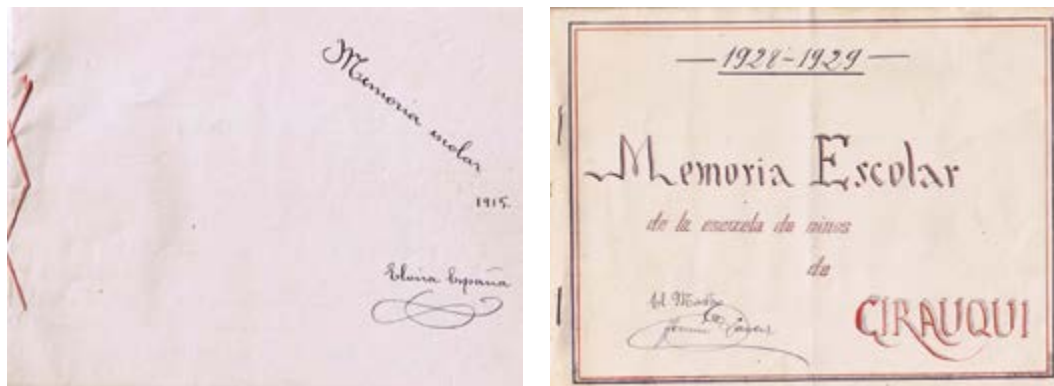 Memoria escolar
1915.
Eloisa España
1928-1929
Memoria Escolar
de la escuela de niños
de
CIRAUQUI
El Maestro